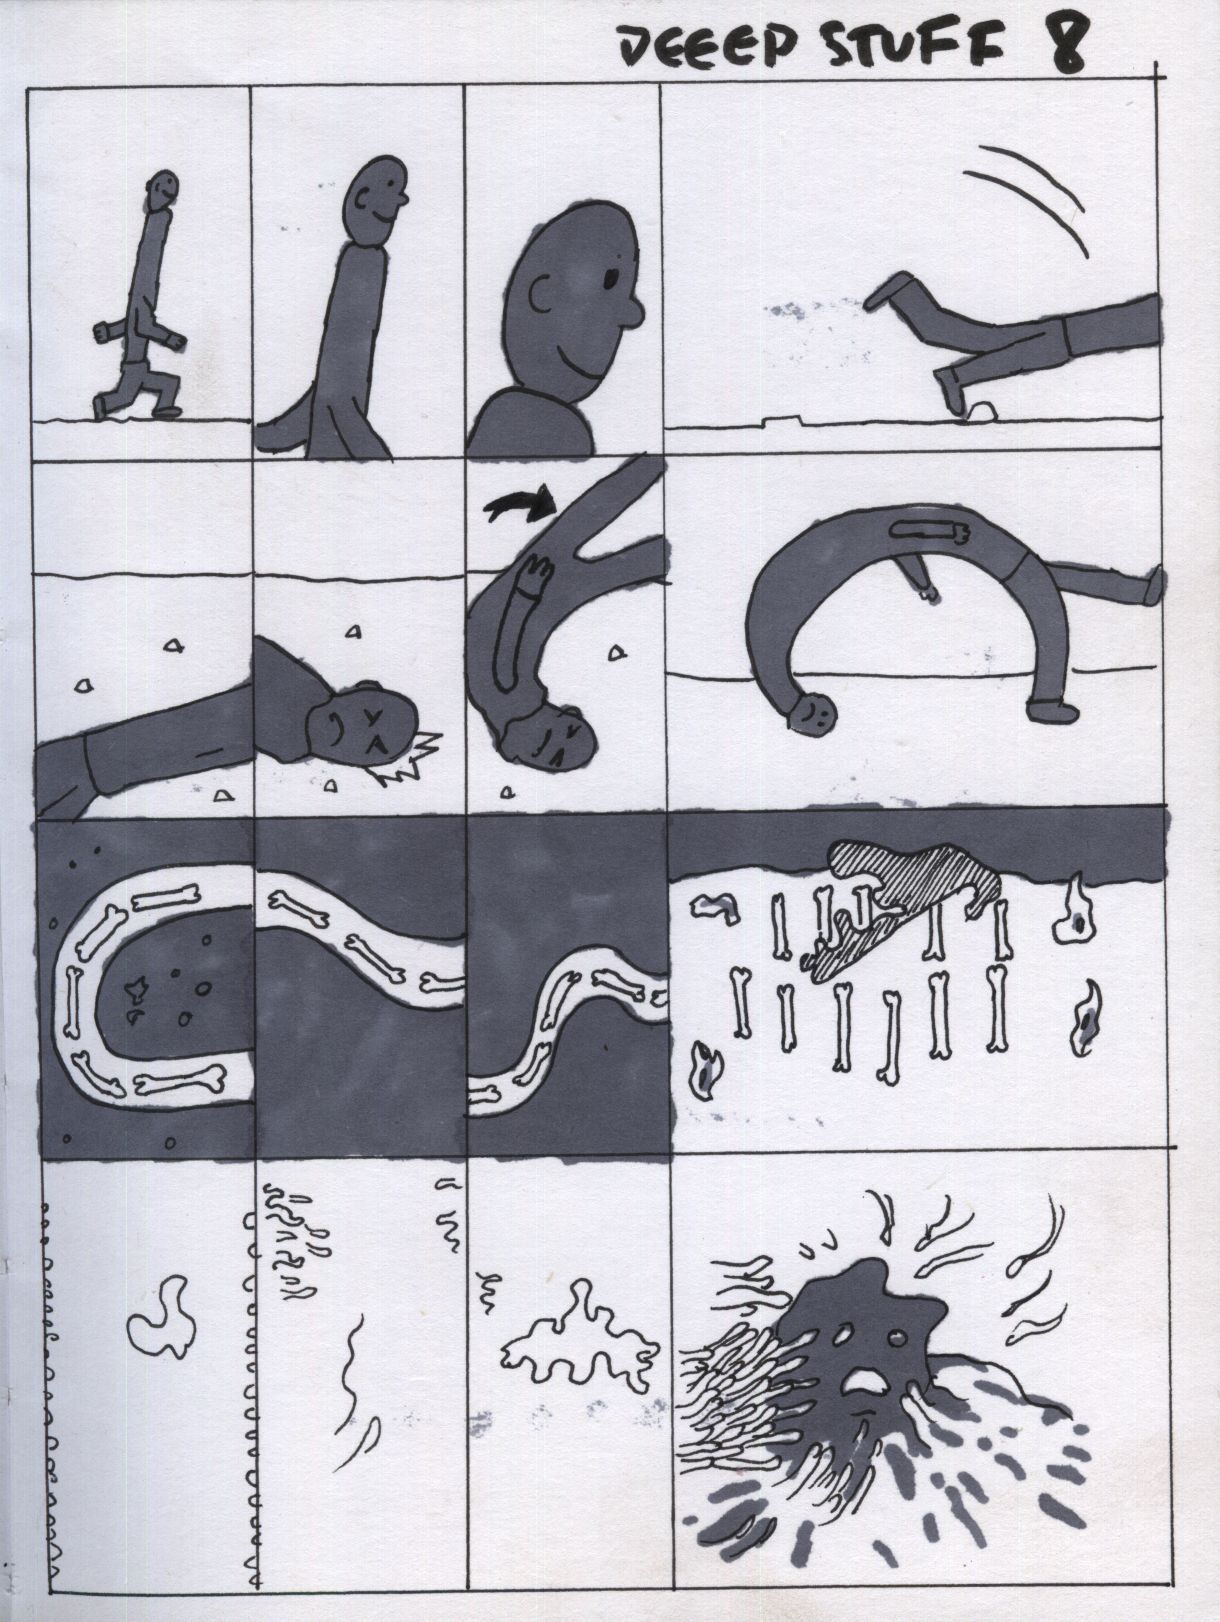 DEEEP STUFF 8